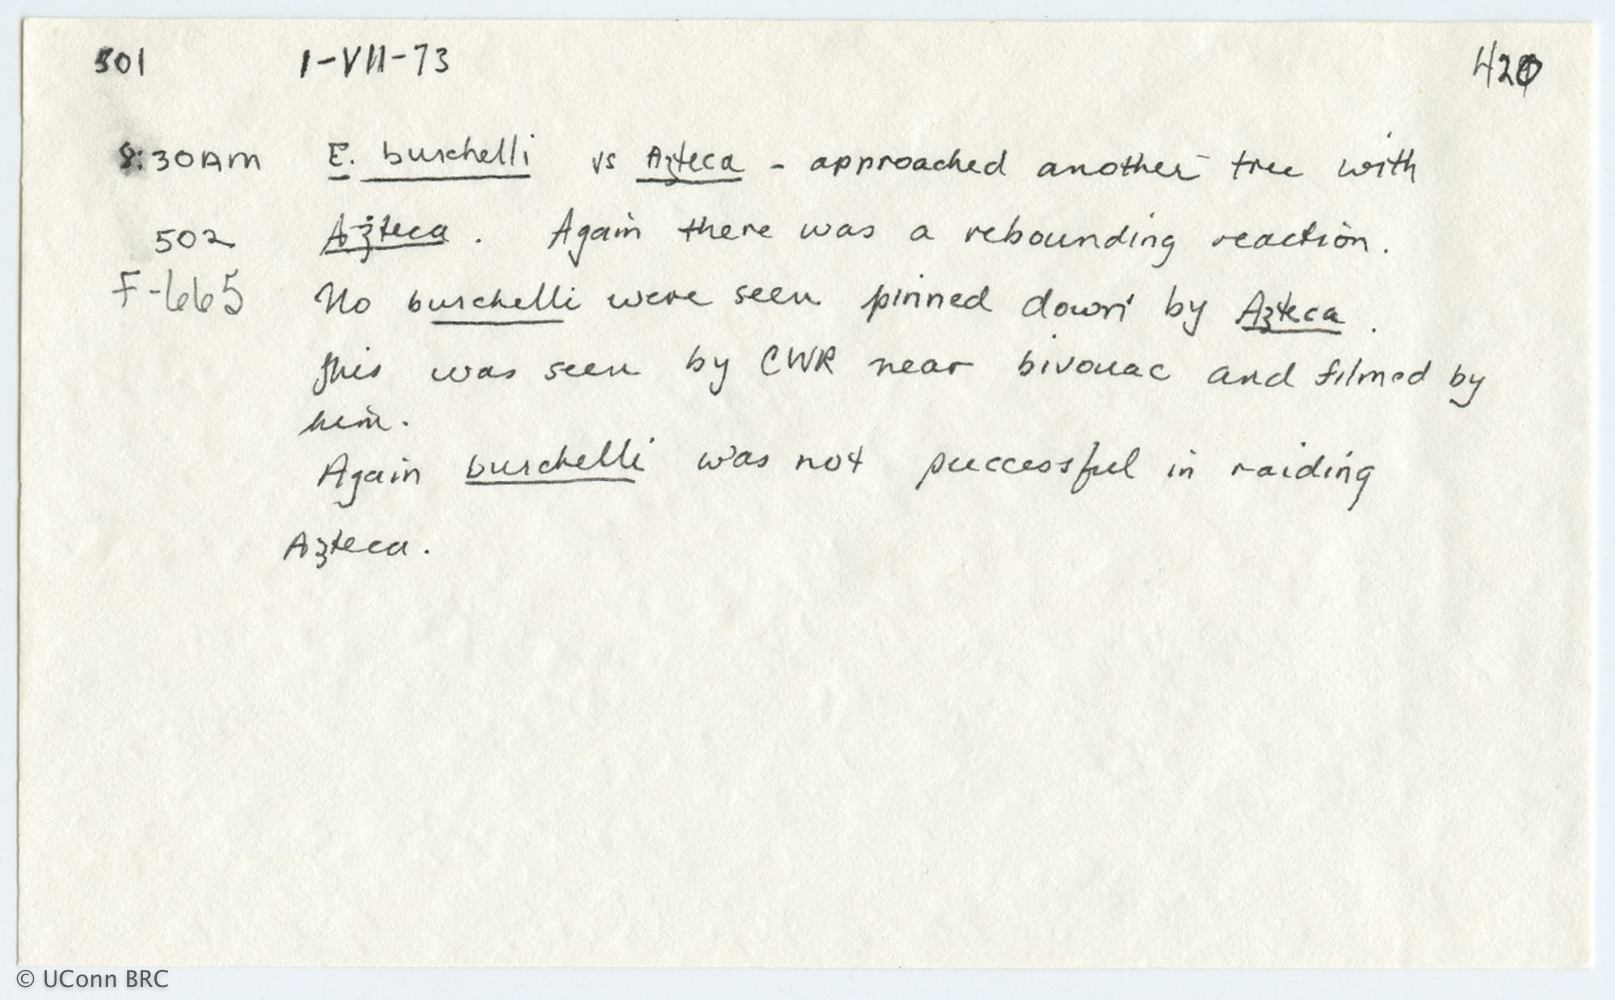 501 1-VII-73
8:30AM E. burchelli vs Azteca - approached another tree with
502 Azteca. Again there was a rebounding reaction.
F-665 No burchelli were seen pinned down by Azteca.
This was seen by CWR near bivouac and filmed by
him.
Again burchelli was not successful in raiding
Azteca.
© UConn BRC